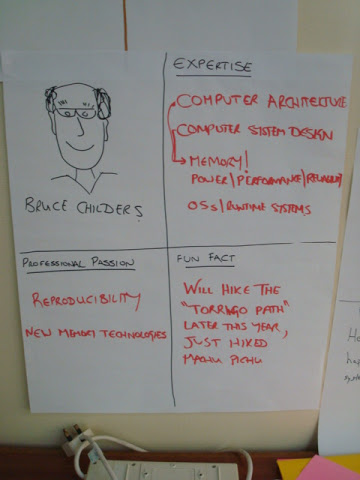 BRUCE CHILDERS
EXPERTISE
COMPUTER ARCHITECTURE
COMPUTER SYSTEM DESIGN
MEMORY!
POWER/PERFORMANCE/RELIABILITY
OSs/RUNTIME SYSTEMS
PROFESSIONAL PASSION
REPRODUCIBILITY
NEW MEMORY TECHNOLOGIES
FUN FACT
WILL HIKE THE
"TORRIGO PATH"
LATER THIS YEAR,
JUST HIKED
MACHU PICHU